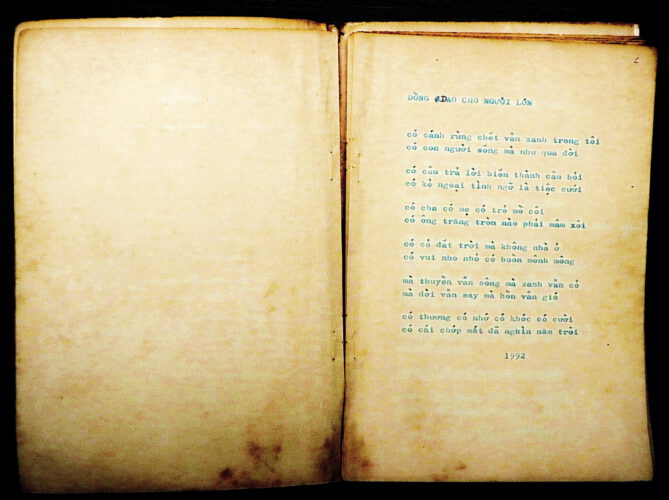 6
ĐỒNG DAO CHO NGƯỜI LỚN
có cánh rừng chết vẫn xanh trong tôi
có con người sống mà như qua đời
có câu trả lời biến thành câu hỏi
có kẻ ngoại tình ngỡ là tiệc cưới
có cha có mẹ có trẻ mồ côi
có ông trăng tròn nào phải mâm xôi
có cả đất trời mà không nhà ở
có vui nho nhỏ có buồn mênh mông
mà thuyền vẫn sông mà xanh vẫn cỏ
mà đời vẫn say mà hồn vẫn gió
có thương có nhớ có khóc có cười
có cái chớp mắt đã nghìn năm trôi
1992